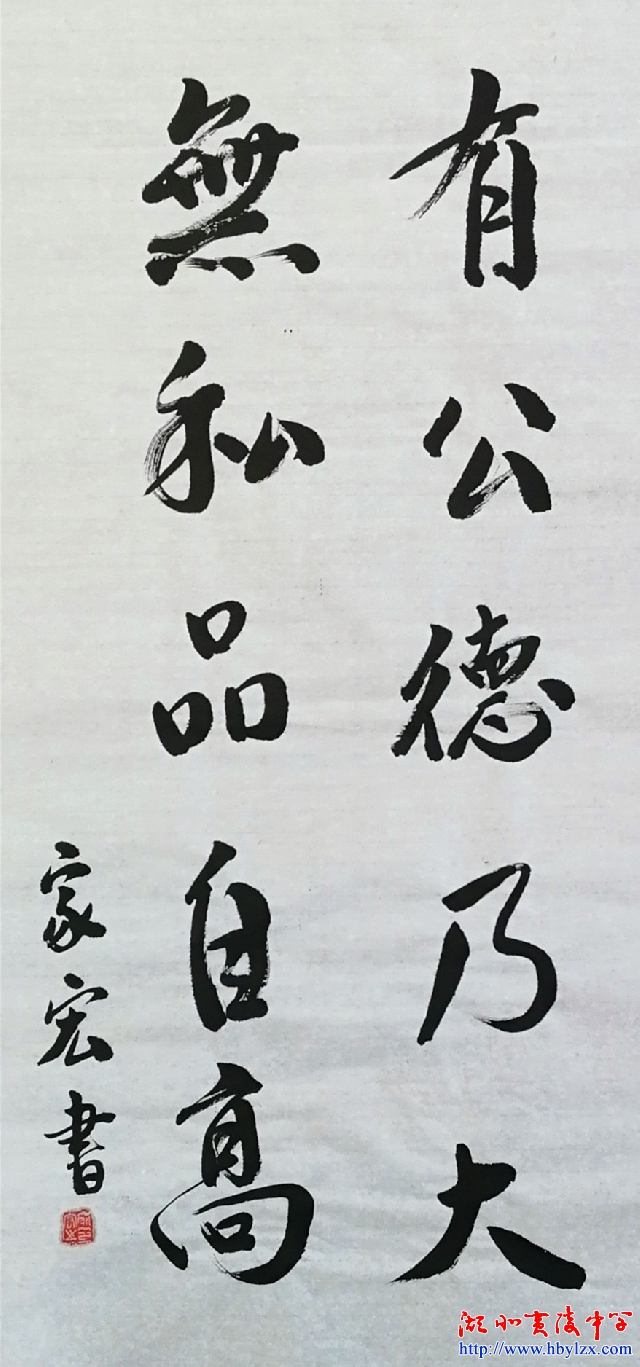 有公德乃大
無私品自高
家宏書
湖北夷陵中学
http://www.hbylzx.com